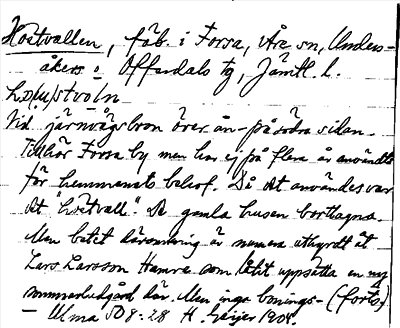 Höstvallen, fäb. i Forsa, Åre sn, Unders-
åkers o Offerdals tg, Jämtl. l.
Vid järnvägsbron över ån på södra sidan.
Tillhör Forsa by men har ej på flera år användts
för hemmanets behof. Då det användes var
det "höstvall". De gamla husen borttagna.
Men betet däromkring är numera uthyrdt åt
Lars Larsson Hamre som låtit uppsätta en ny
sommarladugård där. Men inga bonings- (forts.)
- Ulma 508:28 H. Geijer 1904.